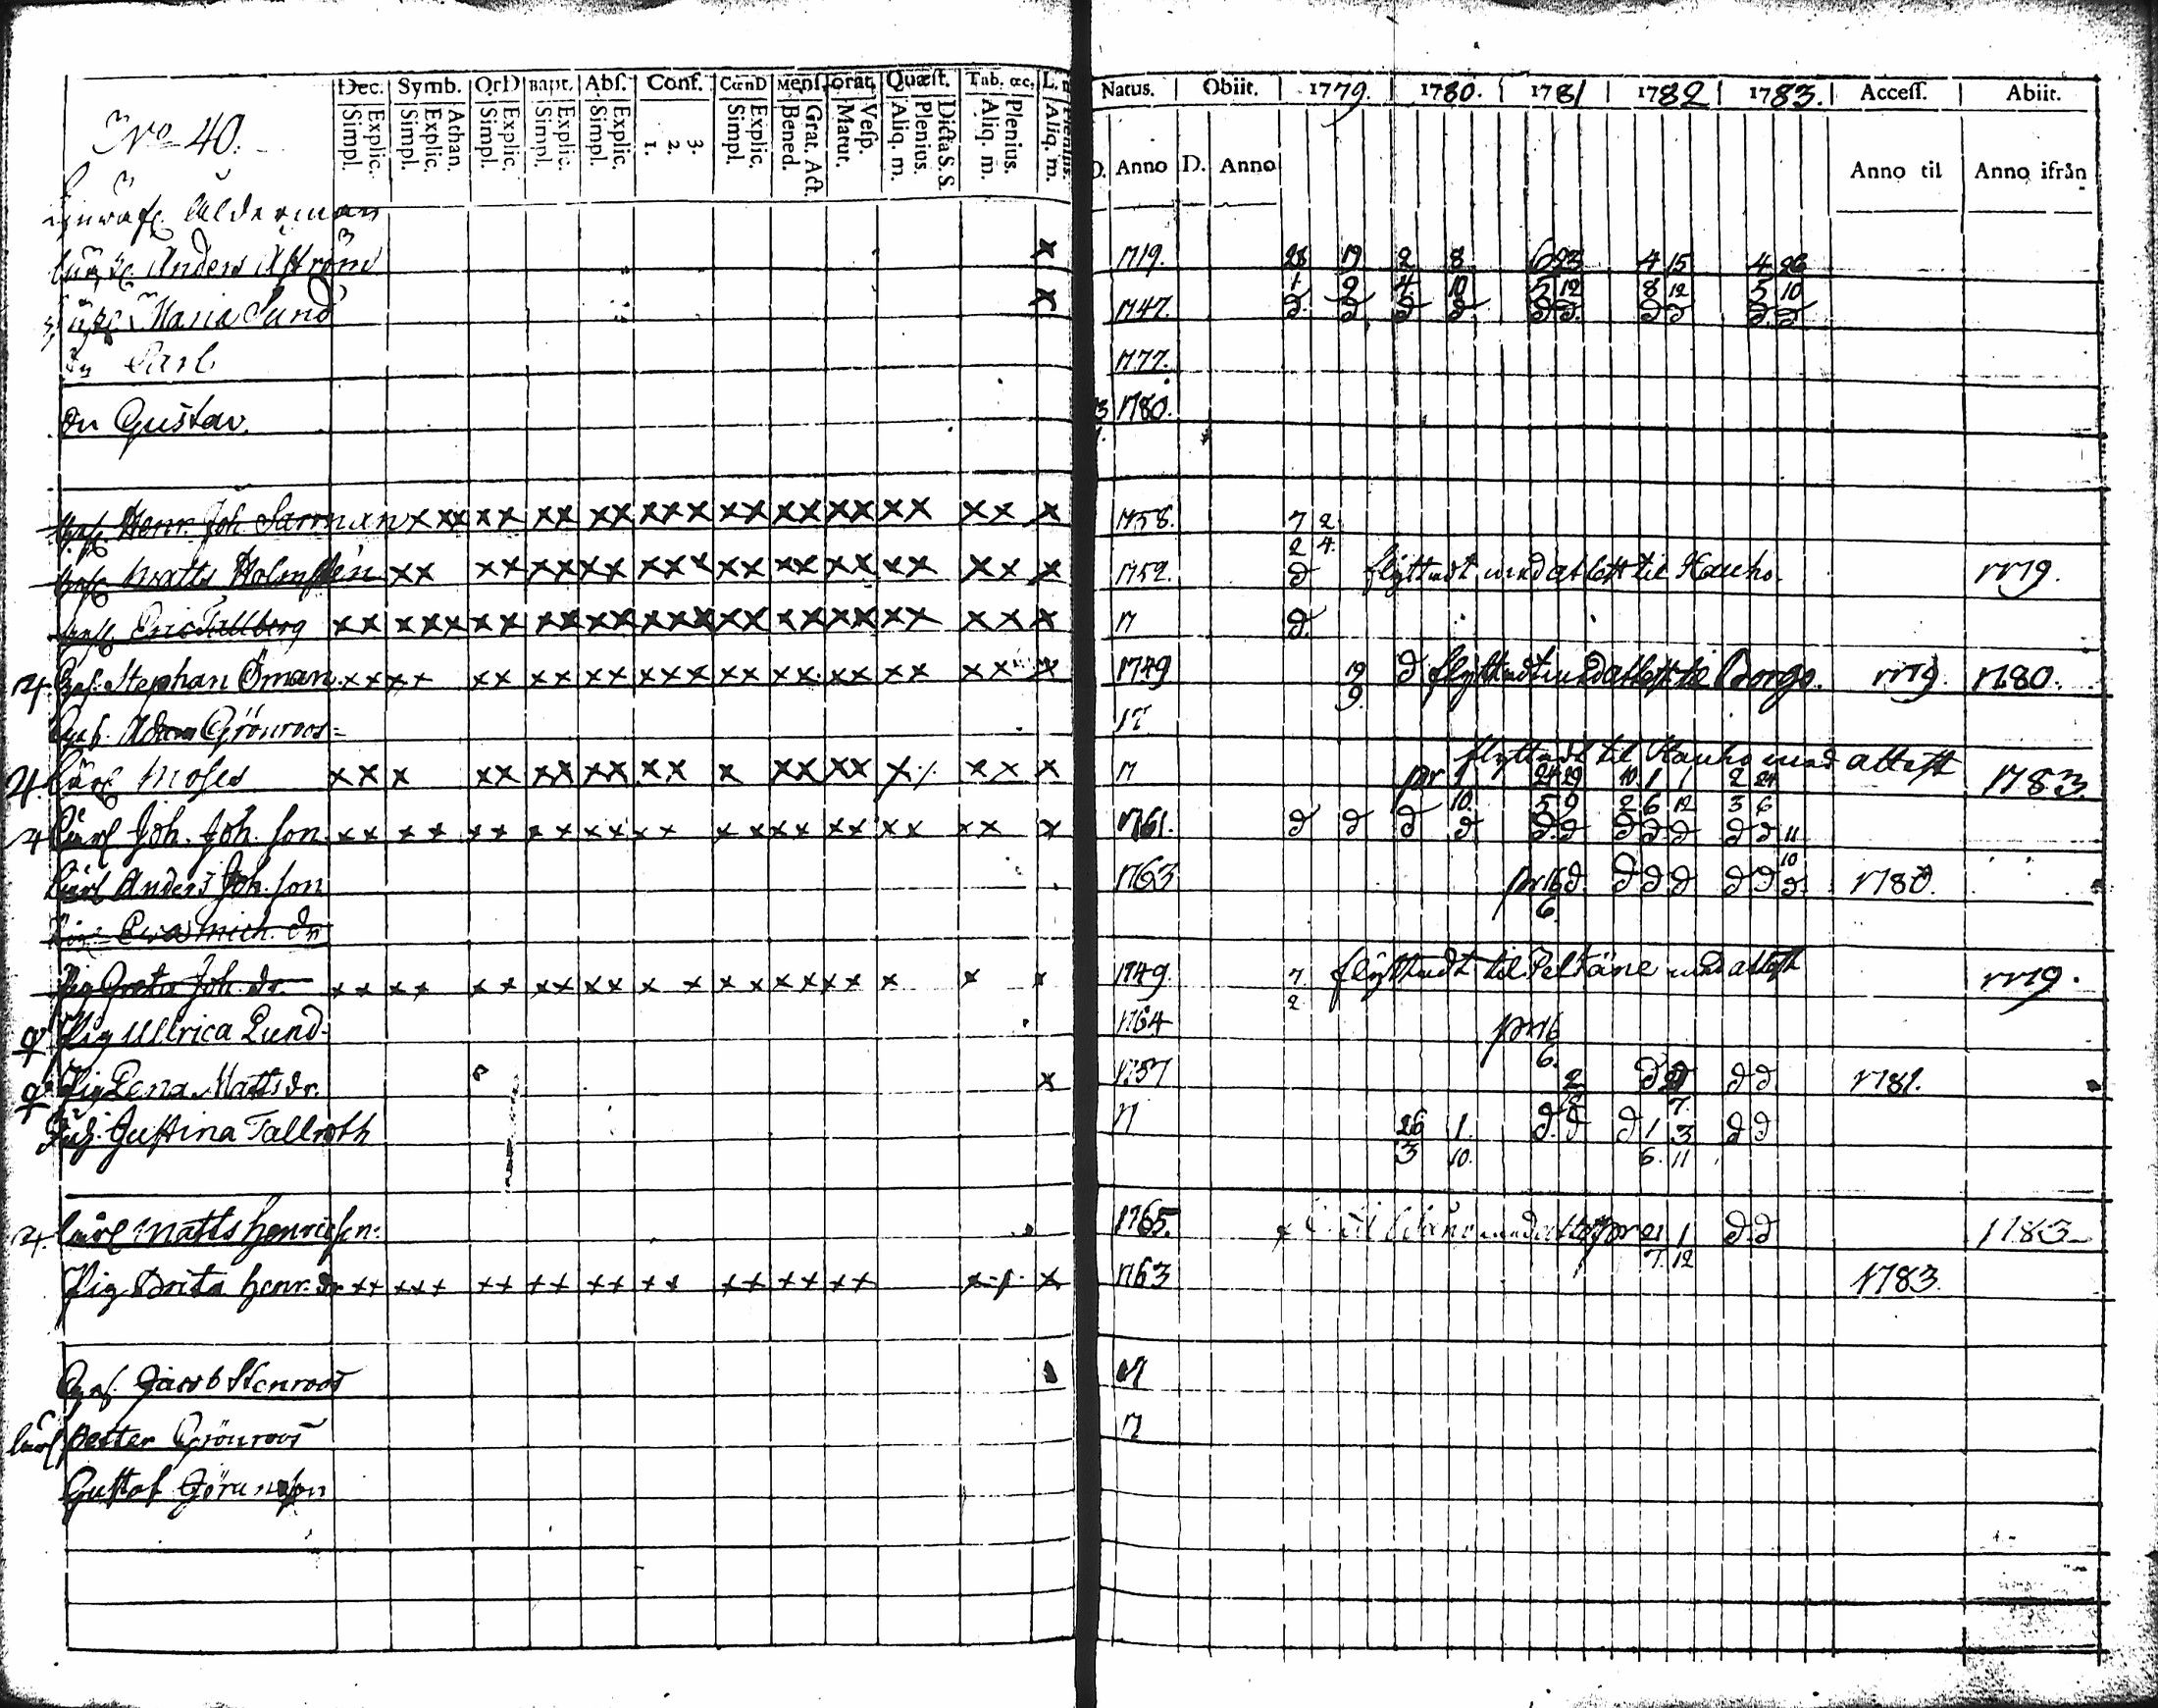 Dec. Symb. OrD Bapt. Abſ. Conf. CœnD Menſ. orat. Quæſt. Tab. œc. L. Natus. Obiit. 1779. 1780. 1781 1782 1783. Acceſſ. Abiit.
Explic. Simpl. Athan. Explic. Simpl. Explic. Simpl. Explic. Simpl. Explic. Simpl. 1. 2. 3. Explic. Simpl. Grat. Act. Bened. Veſp. Matut. Dicta S. S. Plenius. Aliq. m. Plenius. Aliq. m. Aliq. m. D. Anno D. Anno Anno til Anno ifrån
No 40.
Ålderman
Anders Aström x 1719. 28 19 2 8 6 23 4 15 4 26
1. 9 4 10 5 12 8 12 5 10
Maria Sund x 1747. d. d d d. d d. d d d. d
Carl 1777.
dn Gustav. 1780.
Henr. Joh. Sarman x xx xx xx xx xxx xx xx xx xx xx x 1758. 7 2
2 4.
Matts Holmstén xx xx xx xx xxx xx xx xx xx xx x 1752. d flyttadt med attest til Hauho. 1779.
Eric Tallberg xx xxx xx xx xx xxx xx xx xx xx xx x 17 d.
4. Stephan Öman xx xx xx xx xx xxx xx xx xx xx xx x 1749 19 d flyttadt med attest til Borgo. 1779 1780.
9.
Adam Grönroos 17
flyttadt til Hauho med attest
4. Moses xx x xx xx xx xx x xx xx x xx x 17 pr 1 24 29 10 1 1 2 24 1783.
10. 5 9 2 6 12 3 6
4 Joh. Joh. son xx xx xx xx xx xx xx xx xx xx xx x 1761. d d d d d. d d d d d d 11
10
Anders Joh. son 1763 pr 16 d. d d d d d d. 1780.
6.
Eva Mich. dr
Pig Greta Joh. dr. xx xx xx xx xx x x xx xx xx x x x 1749. 7. flyttadt til Pelkäne med attest 1779.
2
Pig Ullrica Lund 1764 pr 16
6.
Pig Lena Matts dr. x 1757 2 d d d 1781.
7.
Justina Tallroth 17 26 1. d. d d 1 3 d d
3 10. 6. 11
4. Matts Henricsson 1765. med attest pr 21 1 d d 1783
7. 12
Pig Brita Henr. dr xx xxx xx xx xx xx xx xx xx x x x 1763 1783.
Jacob Stenroos 17
Petter Grönroos 17
Gustaf Göransson